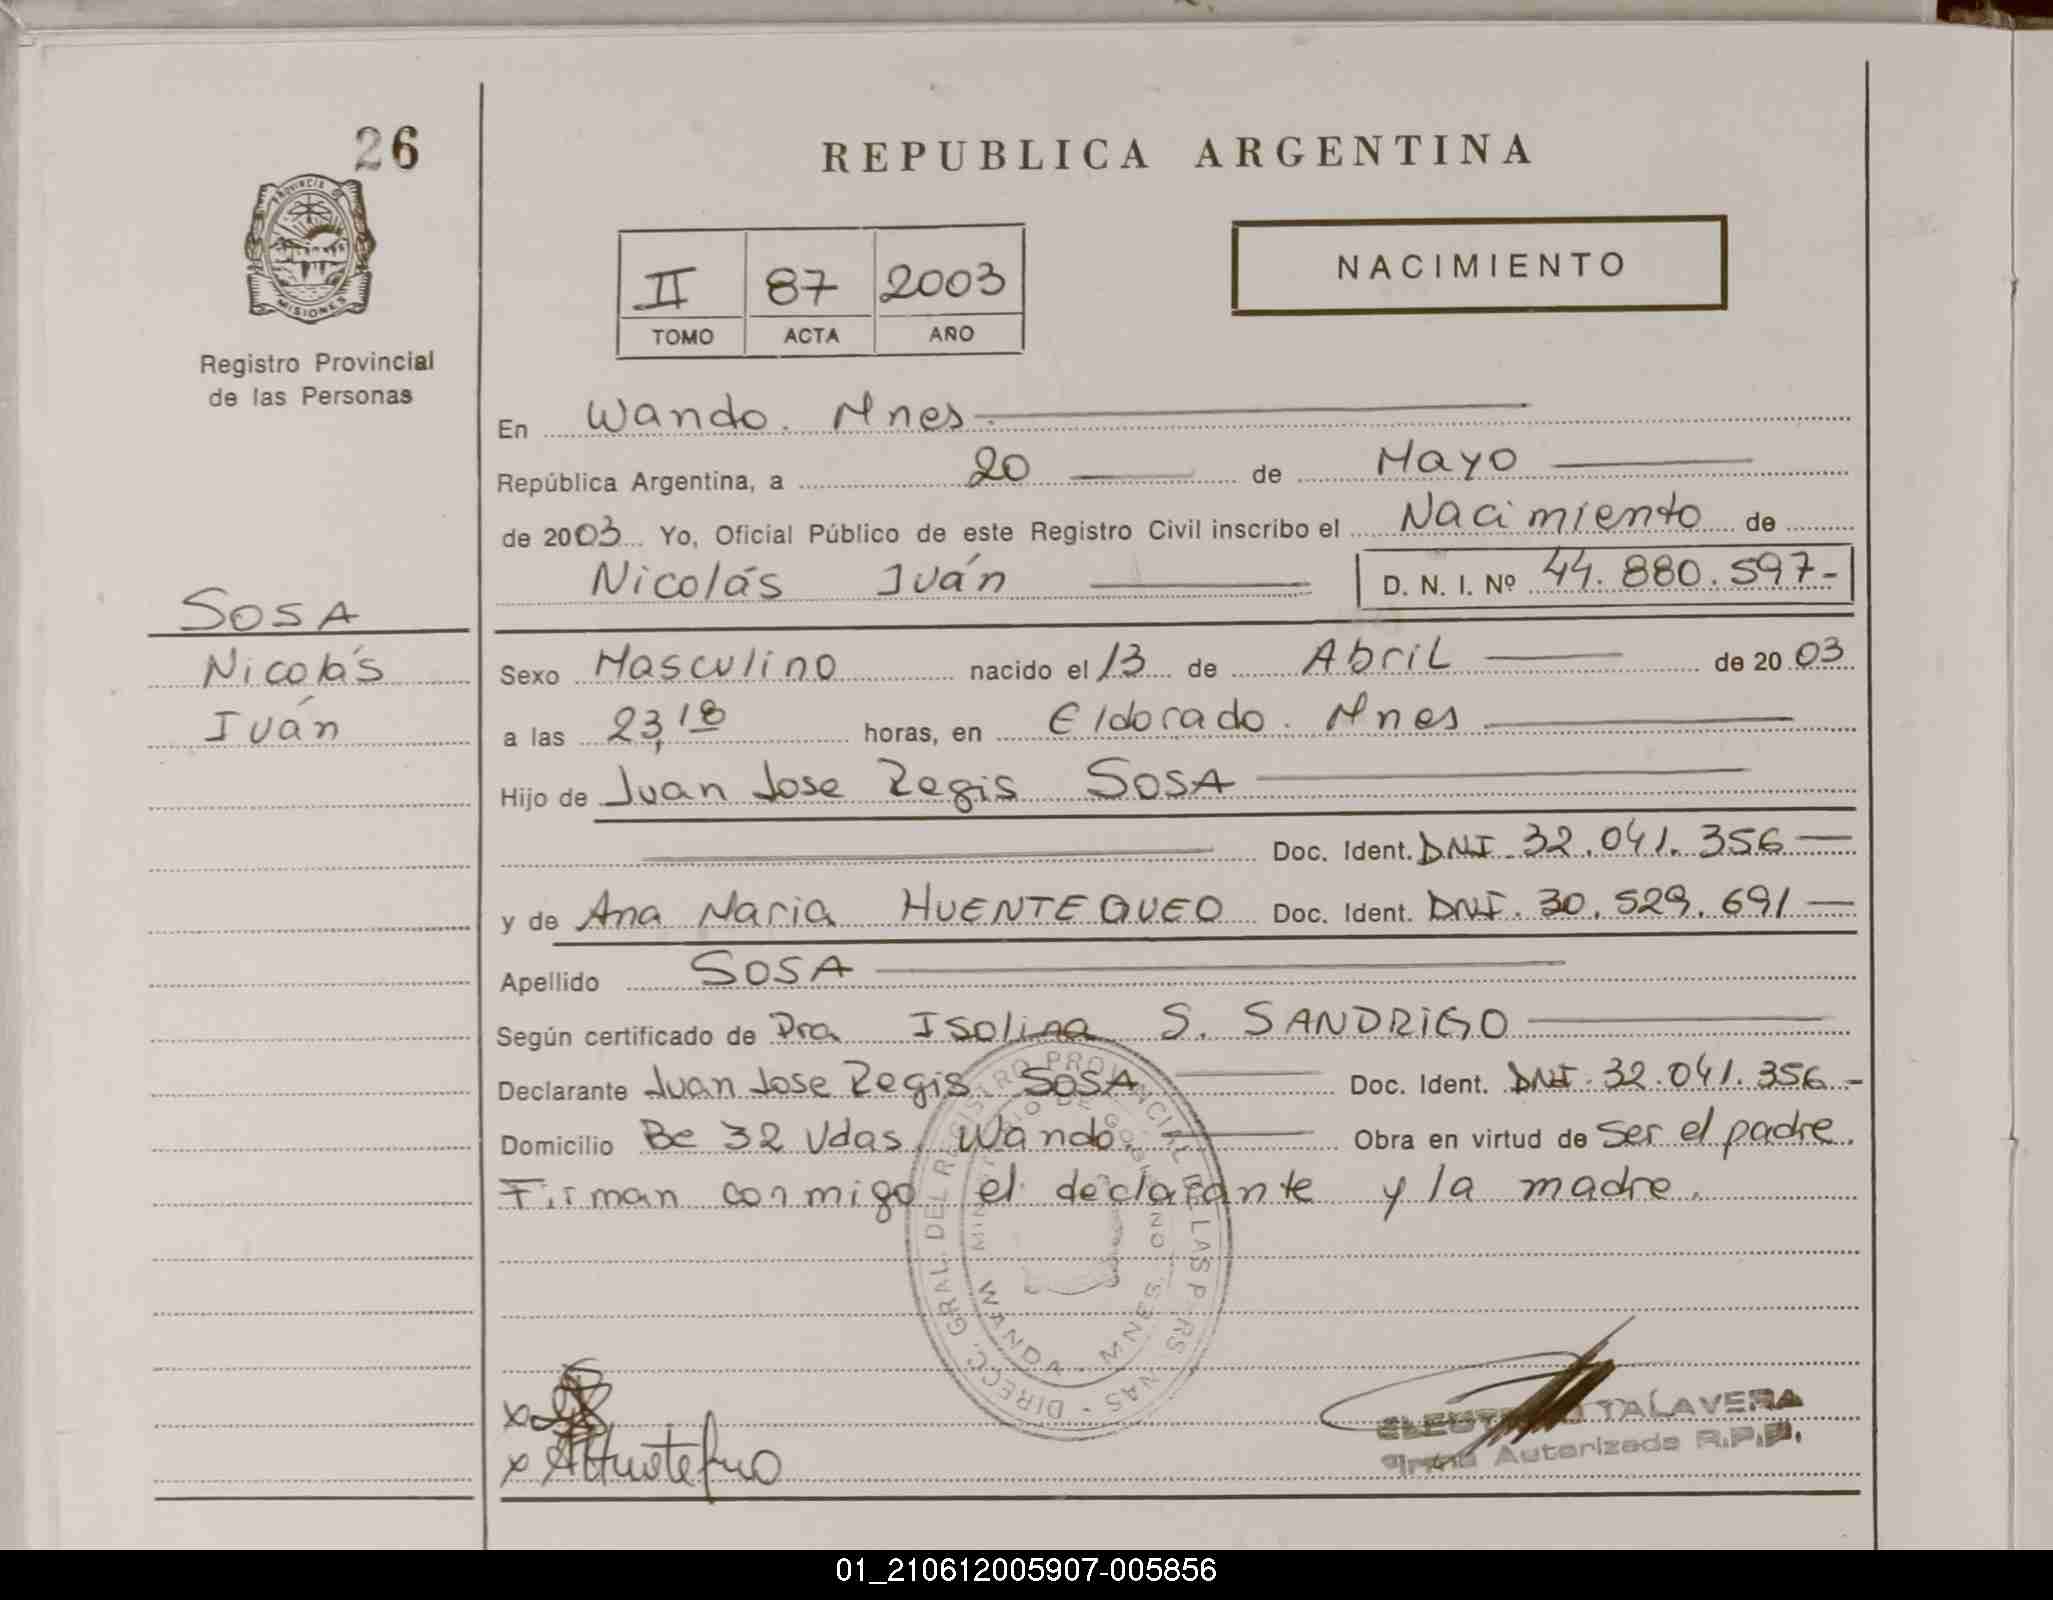 26
REPUBLICA ARGENTINA
PROVINCIA DE
MISIONES
II 87 2003
TOMO ACTA AÑO
NACIMIENTO
Registro Provincial
de las Personas
En Wanda. Mnes.
República Argentina, a 20 de Mayo
de 2003 Yo, Oficial Público de este Registro Civil inscribo el Nacimiento de
Nicolás Iván D. N. I. Nº 44.880.597-
SOSA
Nicolás
Iván
Sexo Masculino nacido el 13 de Abril de 2003
a las 23,18 horas, en Eldorado. Mnes
Hijo de Juan Jose Regis SOSA
Doc. Ident. DNI. 32.041.356
y de Ana Maria HUENTEQUEO Doc. Ident. DNI. 30.529.691
Apellido SOSA
Según certificado de Dra Isolina S. SANDRIGO
Declarante Juan Jose Regis SOSA Doc. Ident. DNI. 32.041.356-
Domicilio Be 32 Vdas. Wanda. Obra en virtud de Ser el padre.
Firman conmigo el declarante y la madre.
DIRECC. GRAL. DEL REGISTRO PROVINCIAL DE LAS PERSONAS
MINISTERIO DE GOBIERNO
WANDA - MNES.
x
x
TALAVERA
Firma Autorizada R.P.P.
01_210612005907-005856